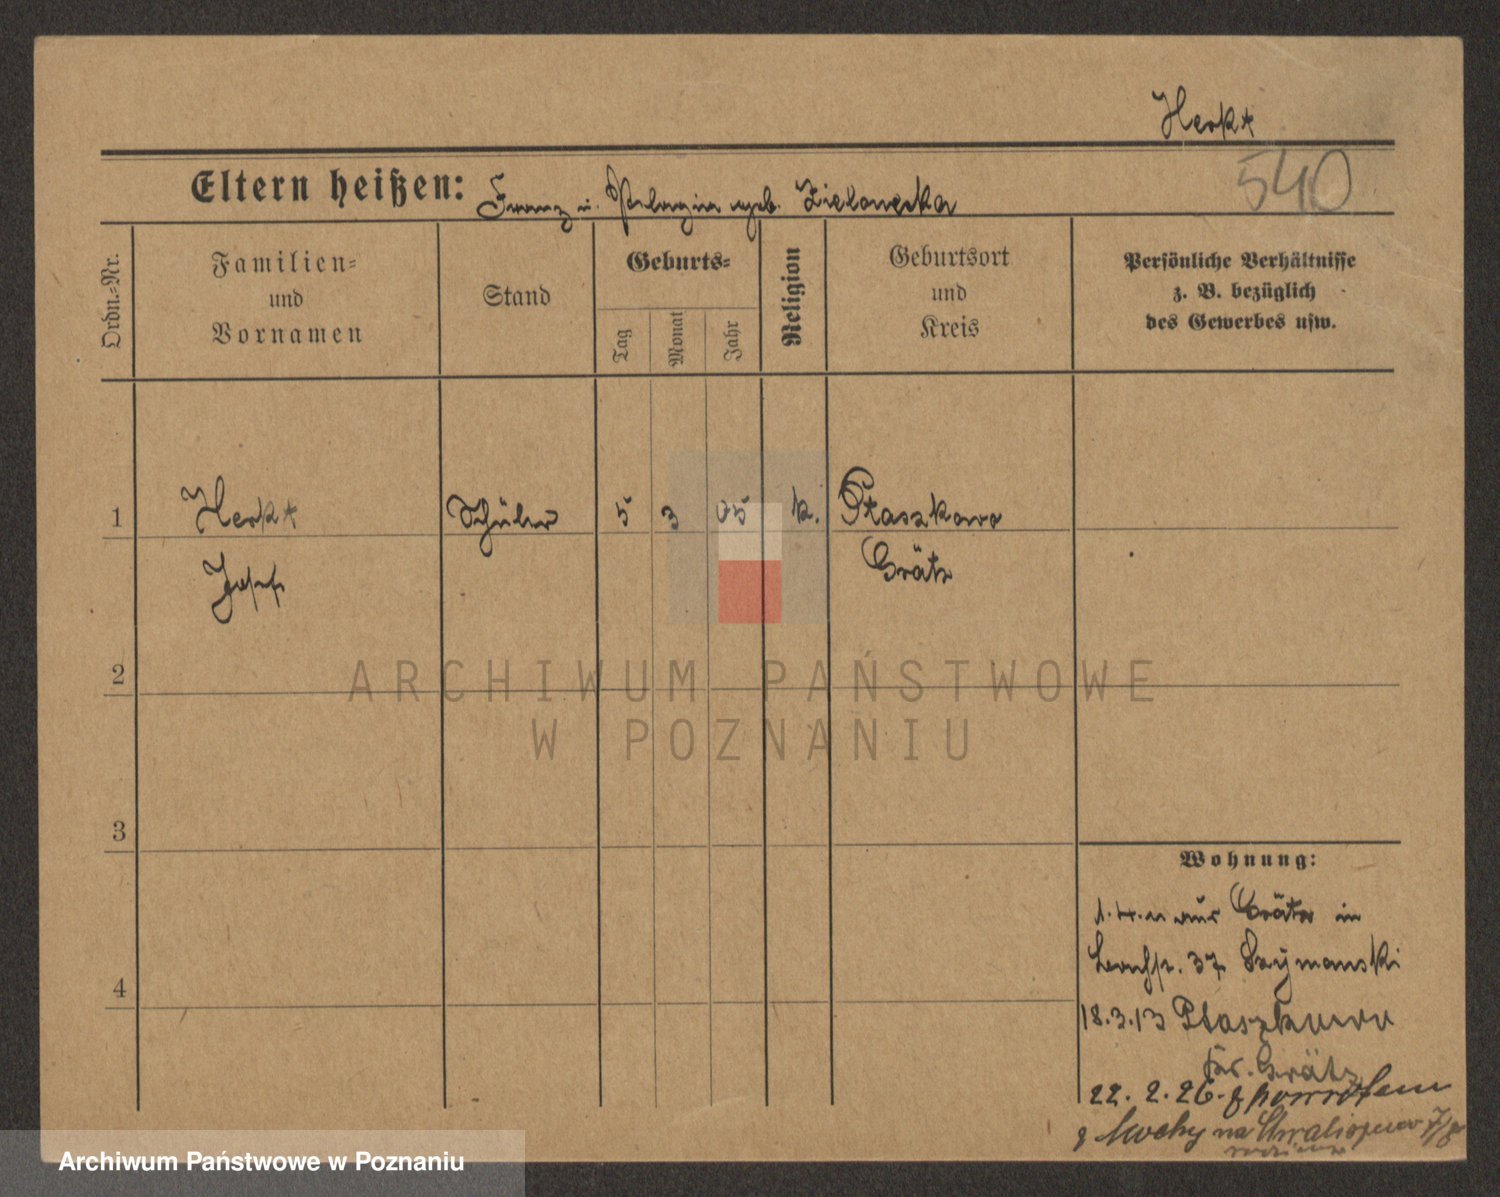 Herkt
540
Eltern heißen: Franz u. Pelagia geb. Zielonacka
Ordn.=Nr.
Familien=
und
Vornamen
Stand
Geburts=
Tag
Monat
Jahr
Religion
Geburtsort
und
Kreis
Persönliche Verhältnisse
z. B. bezüglich
des Gewerbes usw.
1 Herkt Schüler 5 3 05 k. Ptaszkowo
Josef Grätz
2
3
4
Wohnung:
aus Grätz in
37 Szymanski
18.3.13 Ptaszkowo
Kr. Grätz
22. 2. 26. z powrotem
z Mochy na
ARCHIWUM PAŃSTWOWE
W POZNANIU
Archiwum Państwowe w Poznaniu